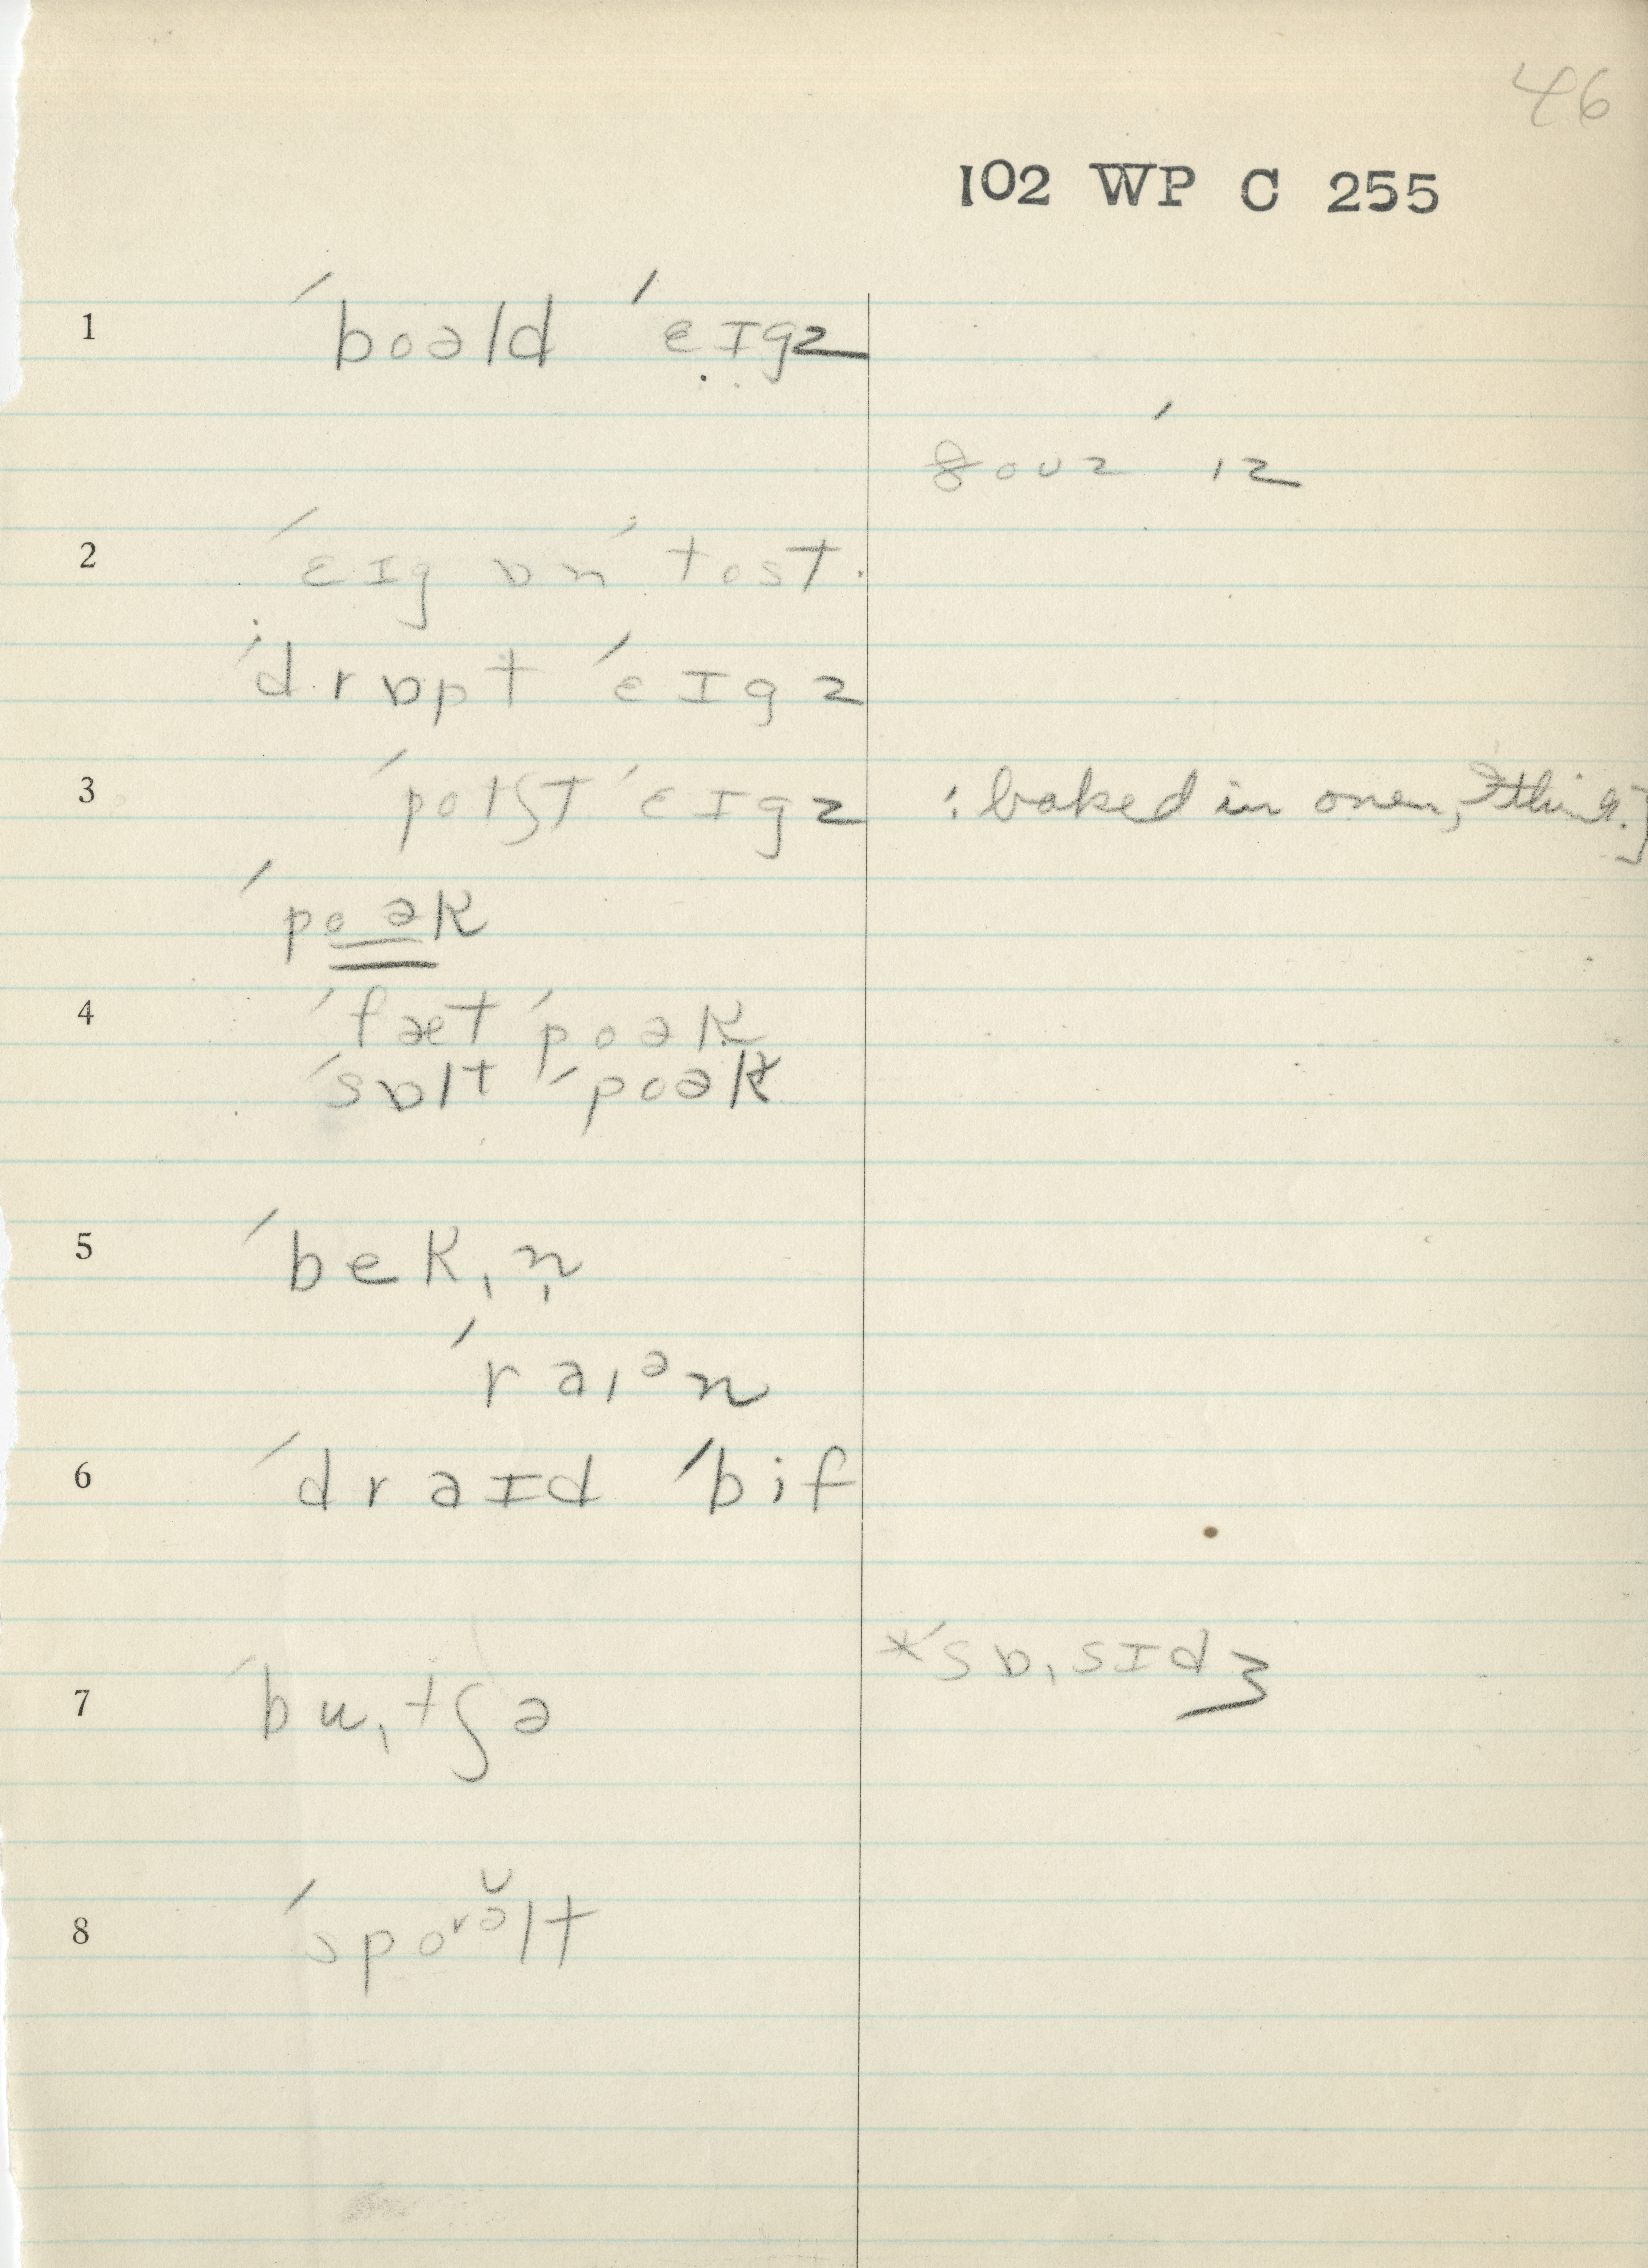 46
102 WP C 255
1 ˈboəld ˈɛɪgz
2 ˈɛɪg ɒn ˈtost
ˈdrɒpt ˈɛɪgz
3 ˈpotʃt ˈɛɪgz : baked in oven, I think.]
ˈpoək
4 ˈfæt ˈpoək
ˈsɒlt ˈpoək
5 ˈbekˌn̩
ˈraɪᵊn
6 ˈdraɪd ˈbif
*ˈsɒˌsɪdʒ
7 ˈbuˌtʃə
8 ˈspoʳə̆lt